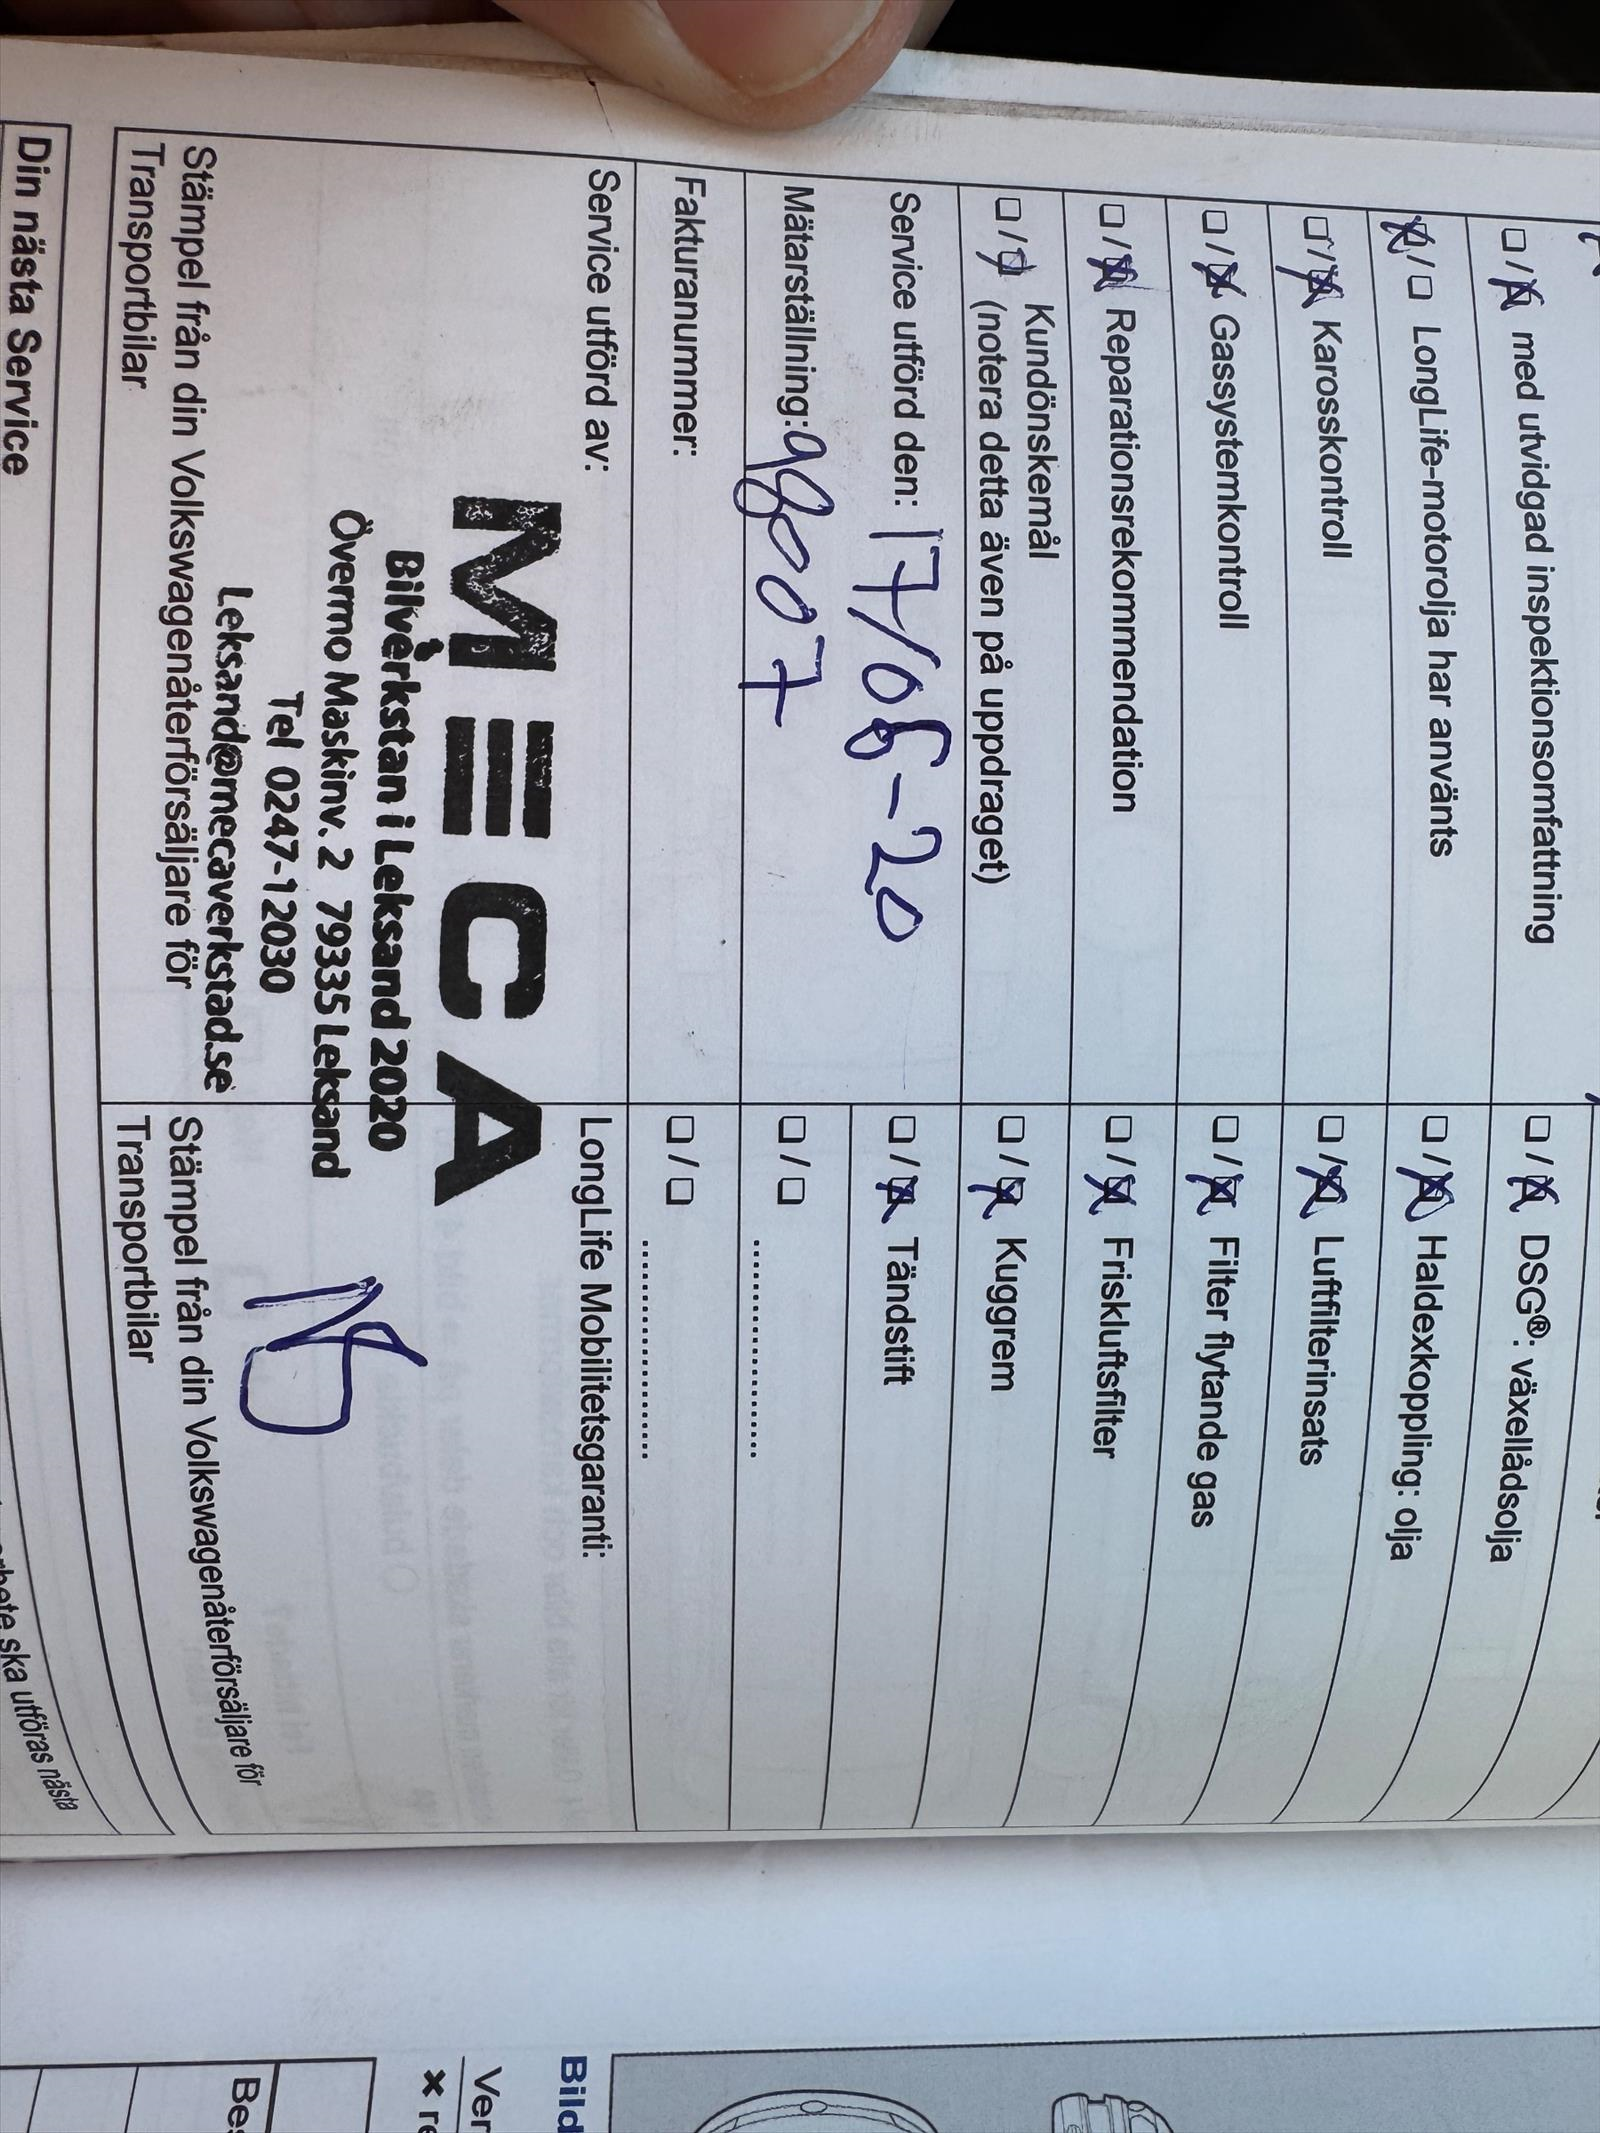 ☐/☒ med utvidgad inspektionsomfattning
☐/☒ DSG®: växellådsolja
☒/☐ LongLife-motorolja har använts
☐/☒ Haldexkoppling: olja
☐/☒ Karosskontroll
☐/☒ Luftfilterinsats
☐/☒ Gassystemkontroll
☐/☒ Filter flytande gas
☐/☒ Reparationsrekommendation
☐/☒ Friskluftsfilter
☐/☒ Kundönskemål
(notera detta även på uppdraget)
☐/☒ Kuggrem
Service utförd den: 17/06-20
☐/☒ Tändstift
Mätarställning: 98007
☐/☐ ......................
Fakturanummer:
☐/☐ ......................
Service utförd av:
LongLife Mobilitetsgaranti:
MECA
Bilverkstan i Leksand 2020
Övermo Maskinv. 2 79335 Leksand
Tel 0247-12030
Leksand@mecaverkstad.se
Stämpel från din Volkswagenåterförsäljare för
Transportbilar
Stämpel från din Volkswagenåterförsäljare för
Transportbilar
Din nästa Service
ska utföras nästa
Bild
Ver
× re
Bes